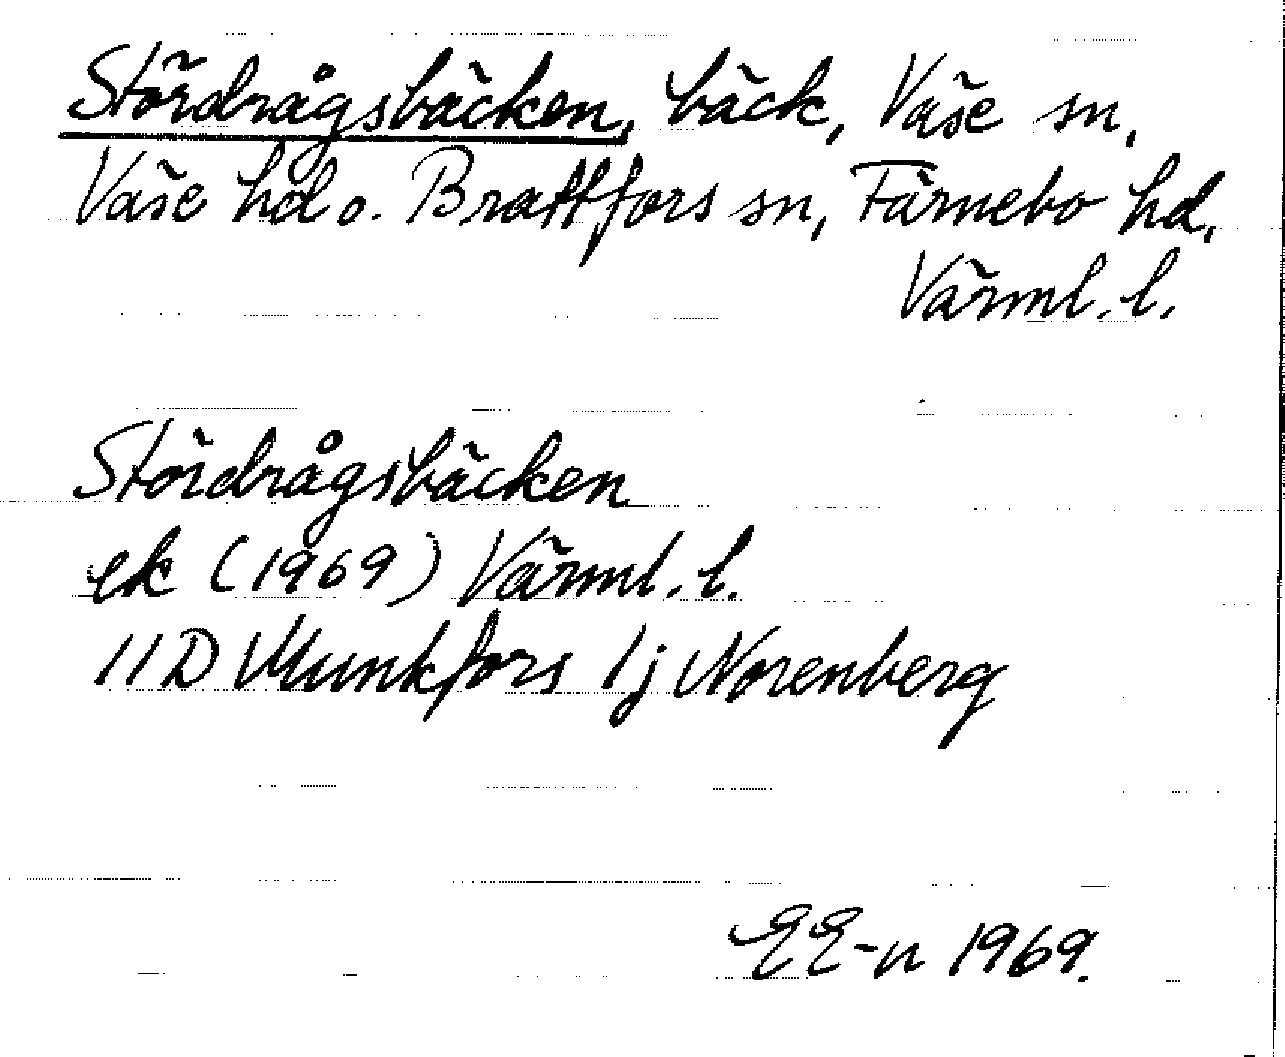 Stördrågsbäcken, bäck, Väse sn,
Väse hd o. Brattfors sn, Färnebo hd,
Värml. l.
Stördrågsbäcken
ek (1969) Värml. l.
11D Munkfors 1j Norenberg
EE-n 1969.